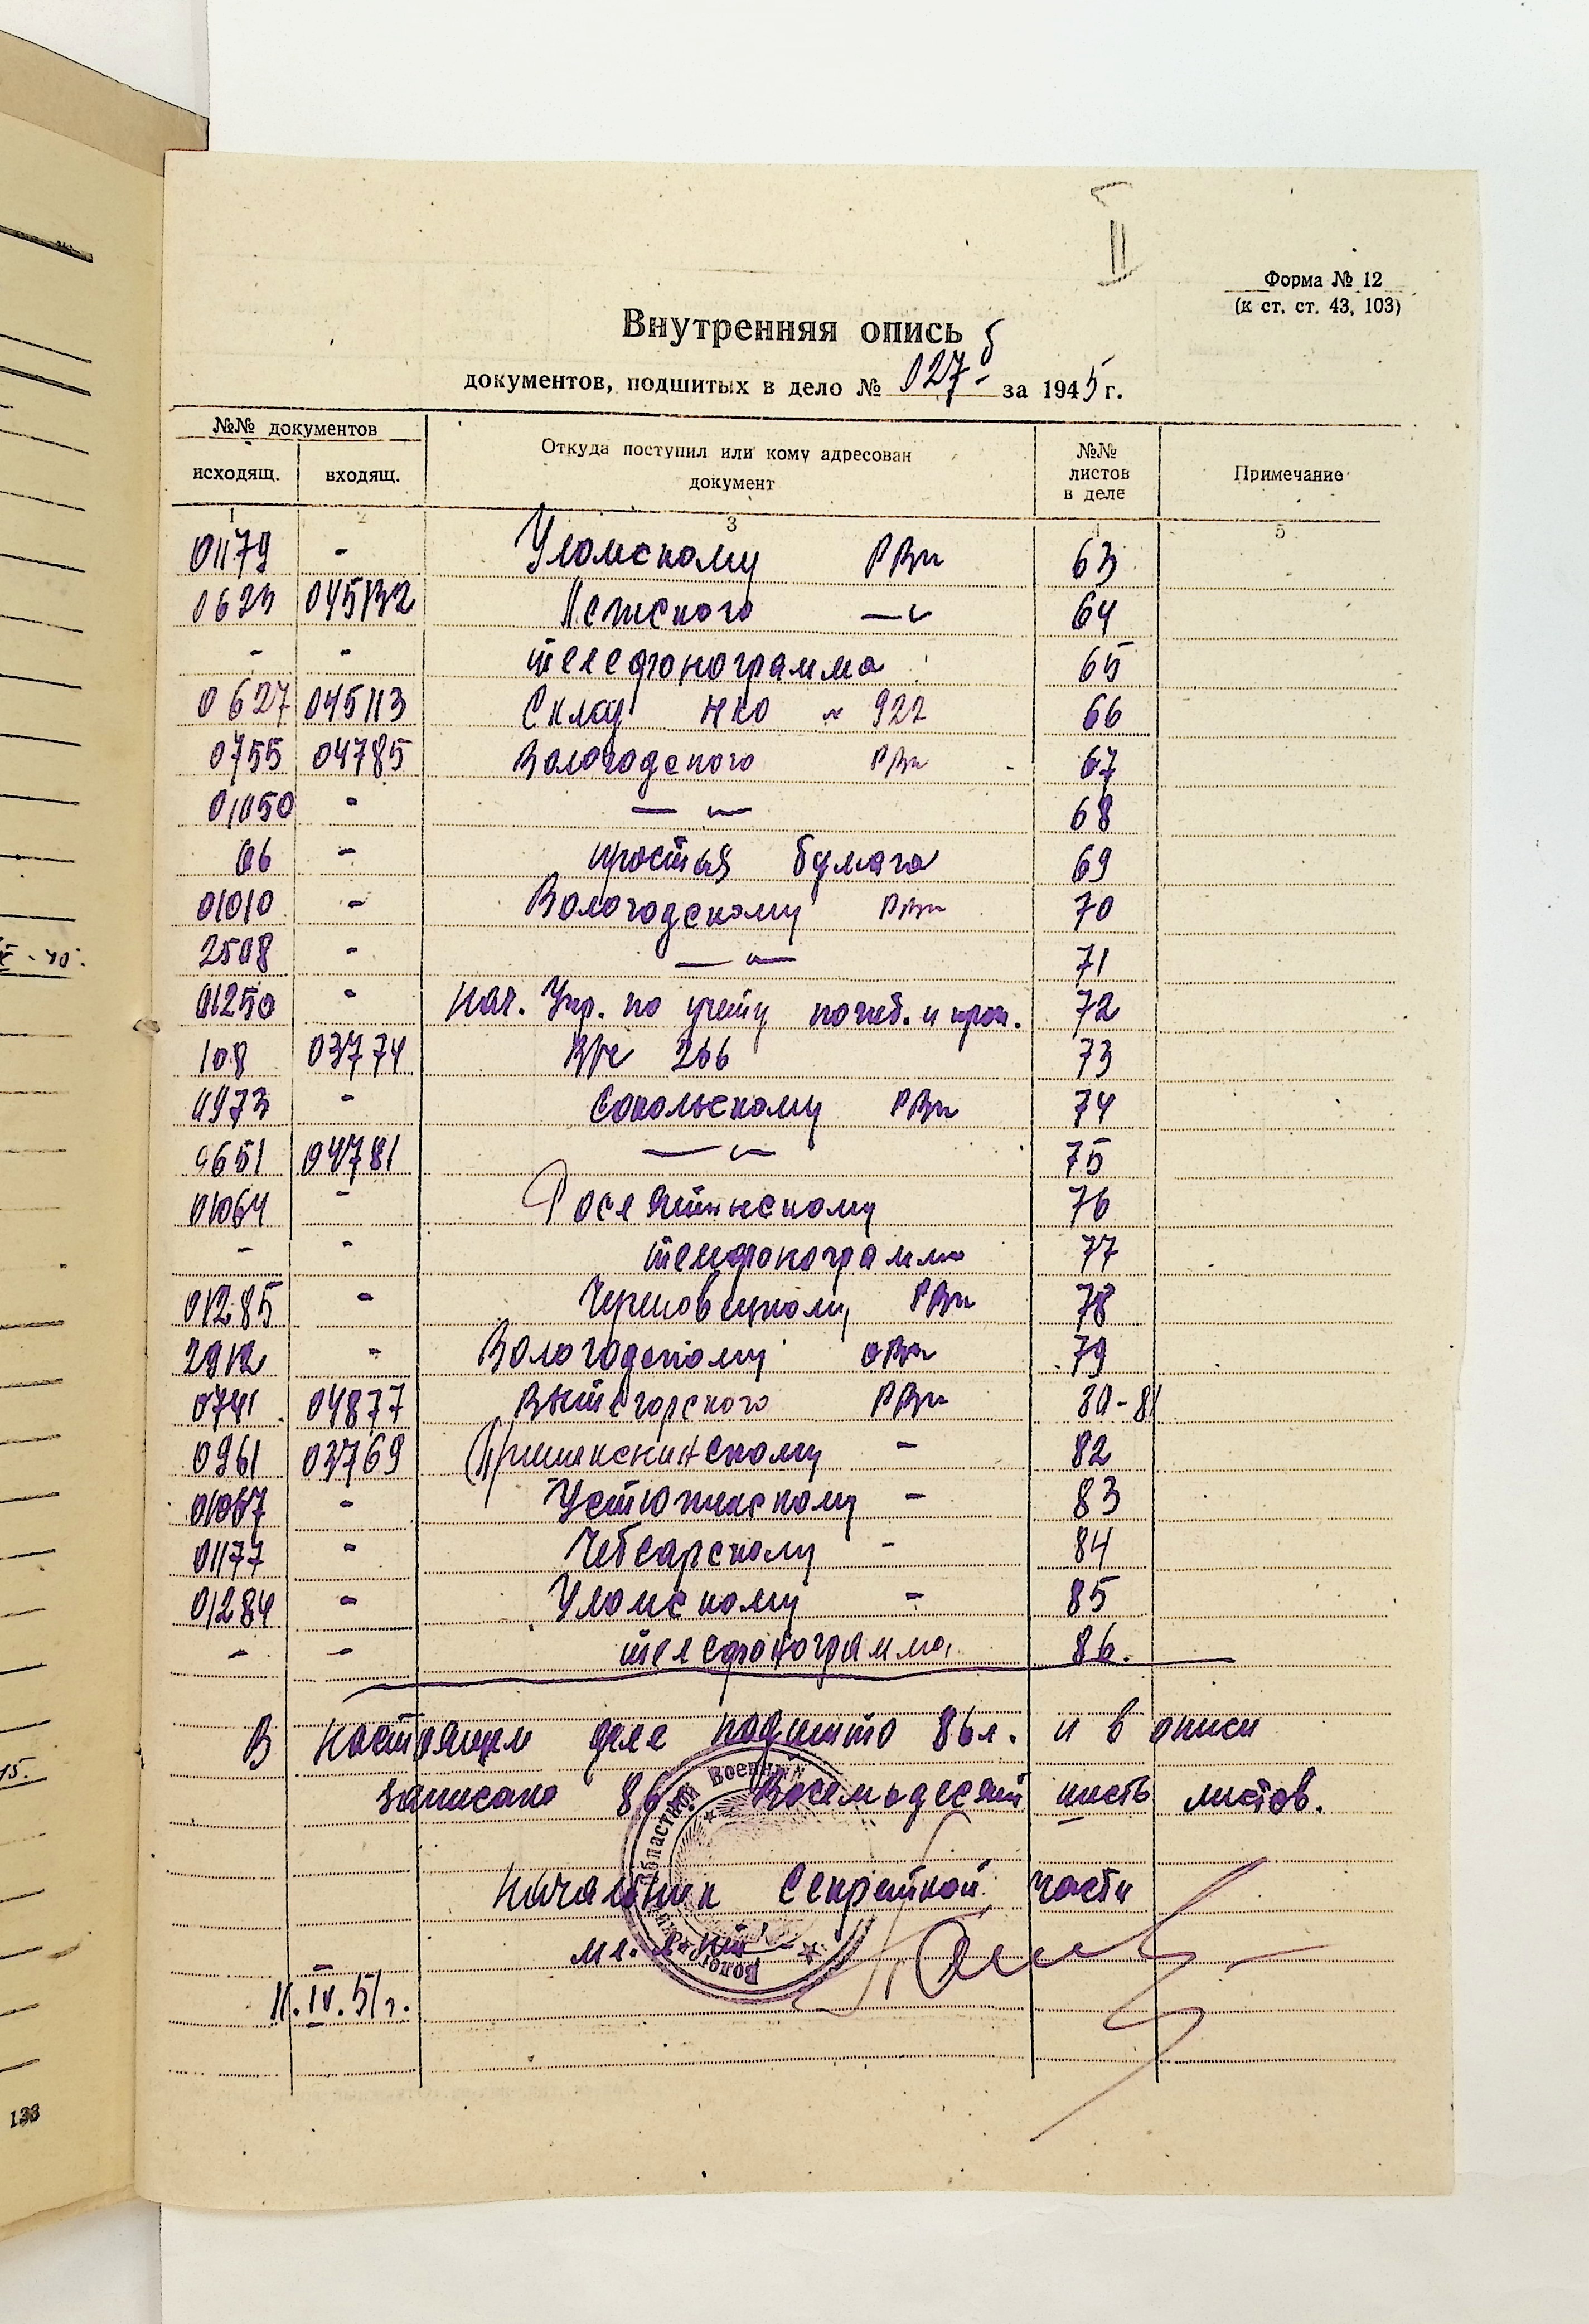 II
Форма № 12
(к ст. ст. 43, 103)
Внутренняя опись
документов, подшитых в дело № 027-б за 1945 г.
№№ документов
исходящ. входящ. Откуда поступил или кому адресован документ №№ листов в деле Примечание
1 2 3 4 5
01179 - Уломскому РВк 63
0623 045132 Лежского —"— 64
- - телефонограмма 65
0627 045113 Склад НКО № 922 66
0755 04785 Вологодского РВк 67
01050 - —"— 68
06 - простая бумага 69
01010 - Вологодскому РВк 70
2508 - —"— 71
01250 - Нач. Упр. по учету погиб. и проп. 72
108 03774 266 73
0973 - Сокольскому РВк 74
0651 04781 —"— 75
01064 - Рослятинскому 76
- - телефонограмма 77
01285 - Череповецкому РВк 78
2912 - Вологодскому оВк 79
0741 04877 Вытегорского РВк 80-81
0961 03769 Пришекснинскому - 82
01067 - Устюженскому - 83
01177 - Чебсарскому - 84
01284 - Уломскому - 85
- - телефонограмма 86.
В настоящем деле подшито 86л. и в описи
записано 86 Восемьдесят шесть листов.
Начальник Секретной части
мл. л-нт
11.IV.51г.
Областной Военный
Волог
133